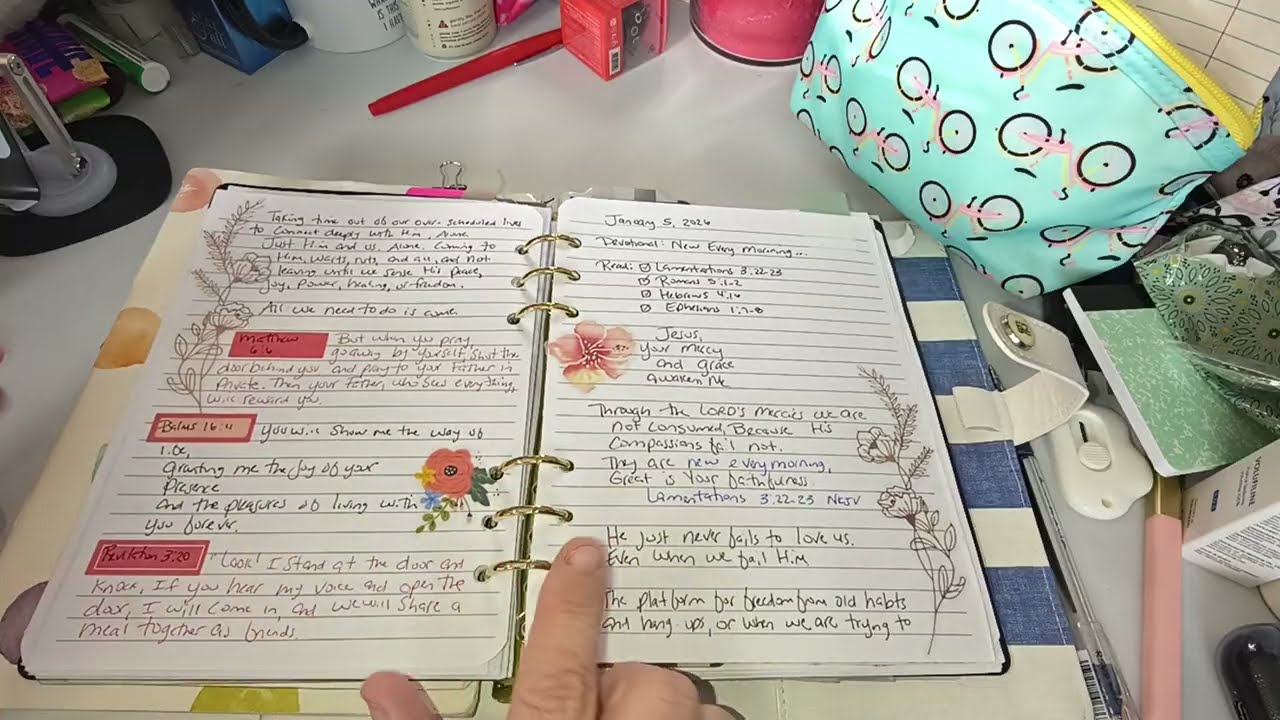 Taking time out of our over-scheduled lives
to connect deeply with Him, Alone.
Just Him and us, Alone. Coming to
Him, warts, nuts, and all, and not
leaving until we sense His peace,
joy, power, healing, or freedom.
All we need to do is come.
Matthew
6:6
But when you pray,
go away by yourself, shut the
door behind you and pray to your Father in
private. Then your Father, who sees everything,
will reward you.
Psalms 16:11
You will show me the way of
life,
granting me the joy of your
presence
and the pleasures of living with
you forever.
Revelation 3:20
"Look! I stand at the door and
knock, If you hear my voice and open the
door, I will come in, and we will share a
meal together as friends.
January 5, 2026
Devotional: New Every Morning...
Read: ☑ Lamentations 3:22-23
☑ Romans 5:1-2
☑ Hebrews 4:16
☑ Ephesians 1:7-8
Jesus,
Your mercy
and grace
awaken me
Through the LORD's mercies we are
not consumed, Because His
compassions fail not.
They are new every morning,
Great is Your faithfulness.
Lamentations 3:22-23 NKJV
He just never fails to love us.
Even when we fail Him
The platform for freedom from old habts
and hang-ups, or when we are trying to